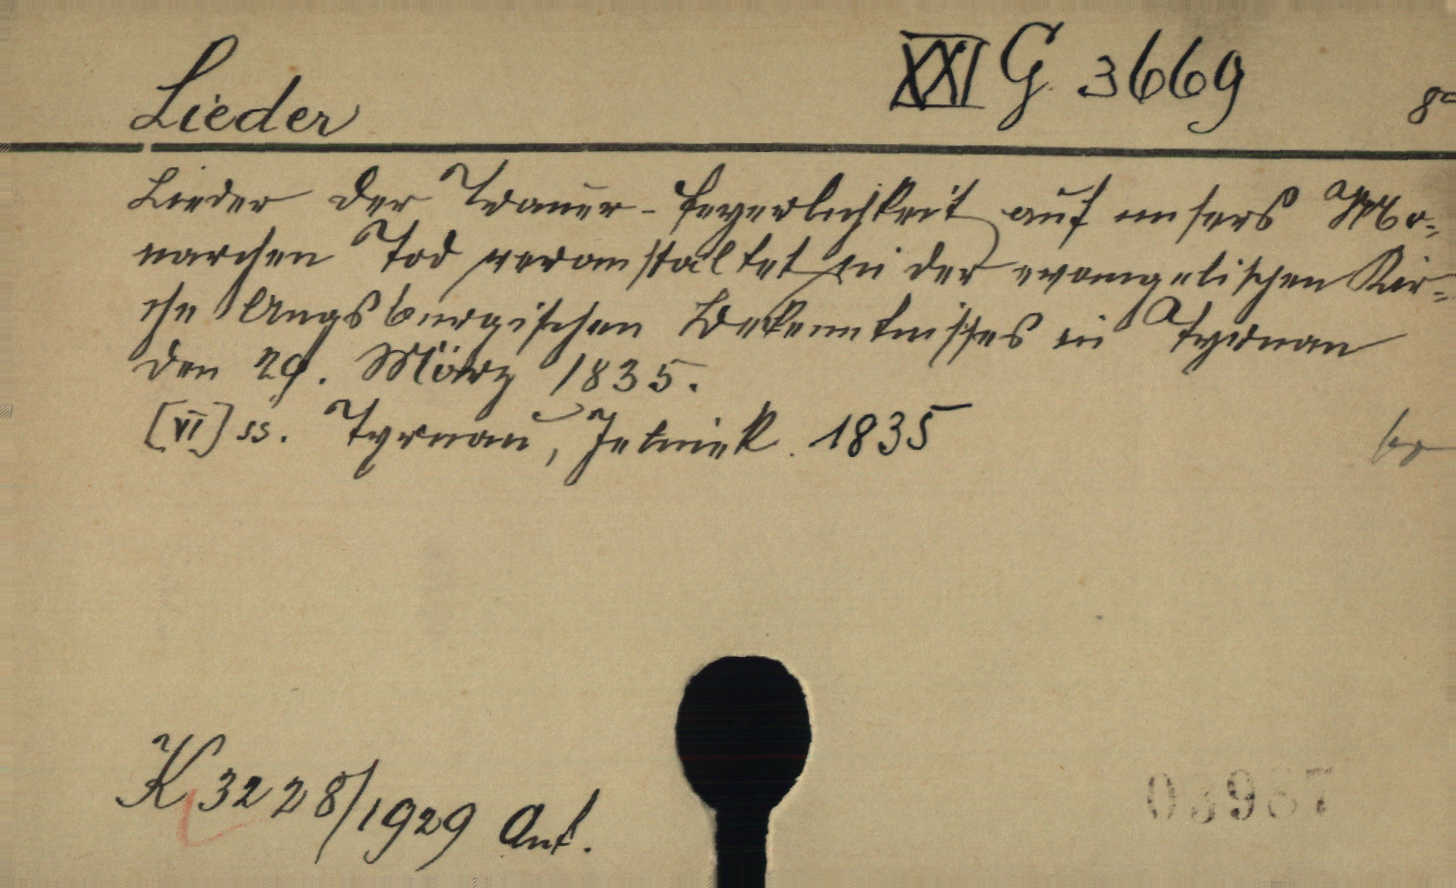 Lieder
XXI G 3669
8°
Lieder der Trauer-Feyerlichkeit auf unsers Mo-
narchen Tod veranstaltet in der evangelischen Kir-
che Augsburgischen Bekenntnisses in Tyrnau
den 29. März 1835.
[VI] ss. Tyrnau, Jelinek. 1835
K 3228/1929 Ant.